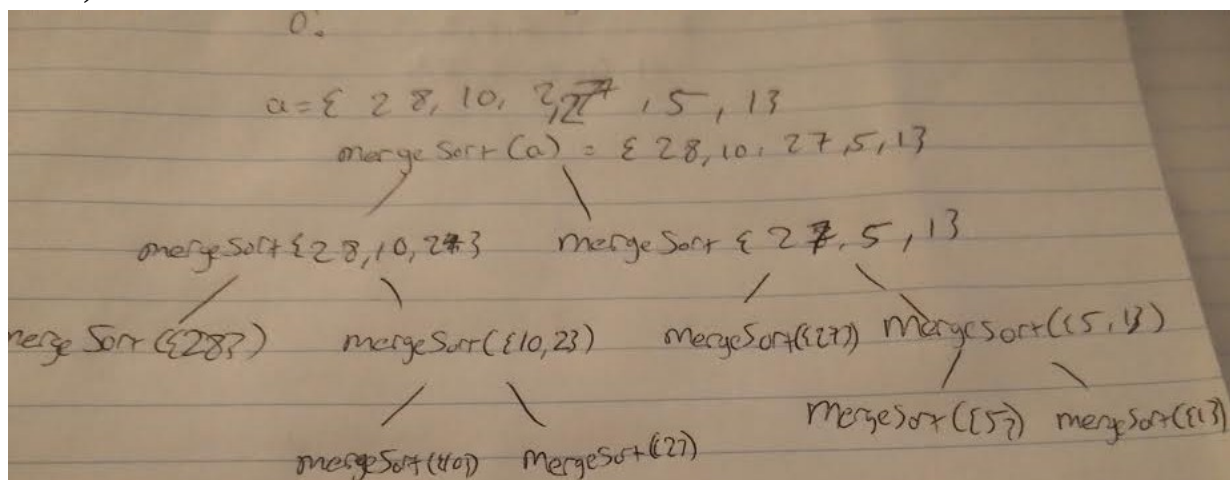 0.
a = { 28, 10, 2, 27, 5, 1}
mergeSort(a) = { 28, 10, 27, 5, 1}
mergeSort{28, 10, 2} mergeSort { 27, 5, 1}
mergeSort({28}) mergeSort({10, 2}) mergeSort({27}) mergeSort({5, 1})
mergeSort({5}) mergeSort({1})
mergeSort({10}) mergeSort({2})